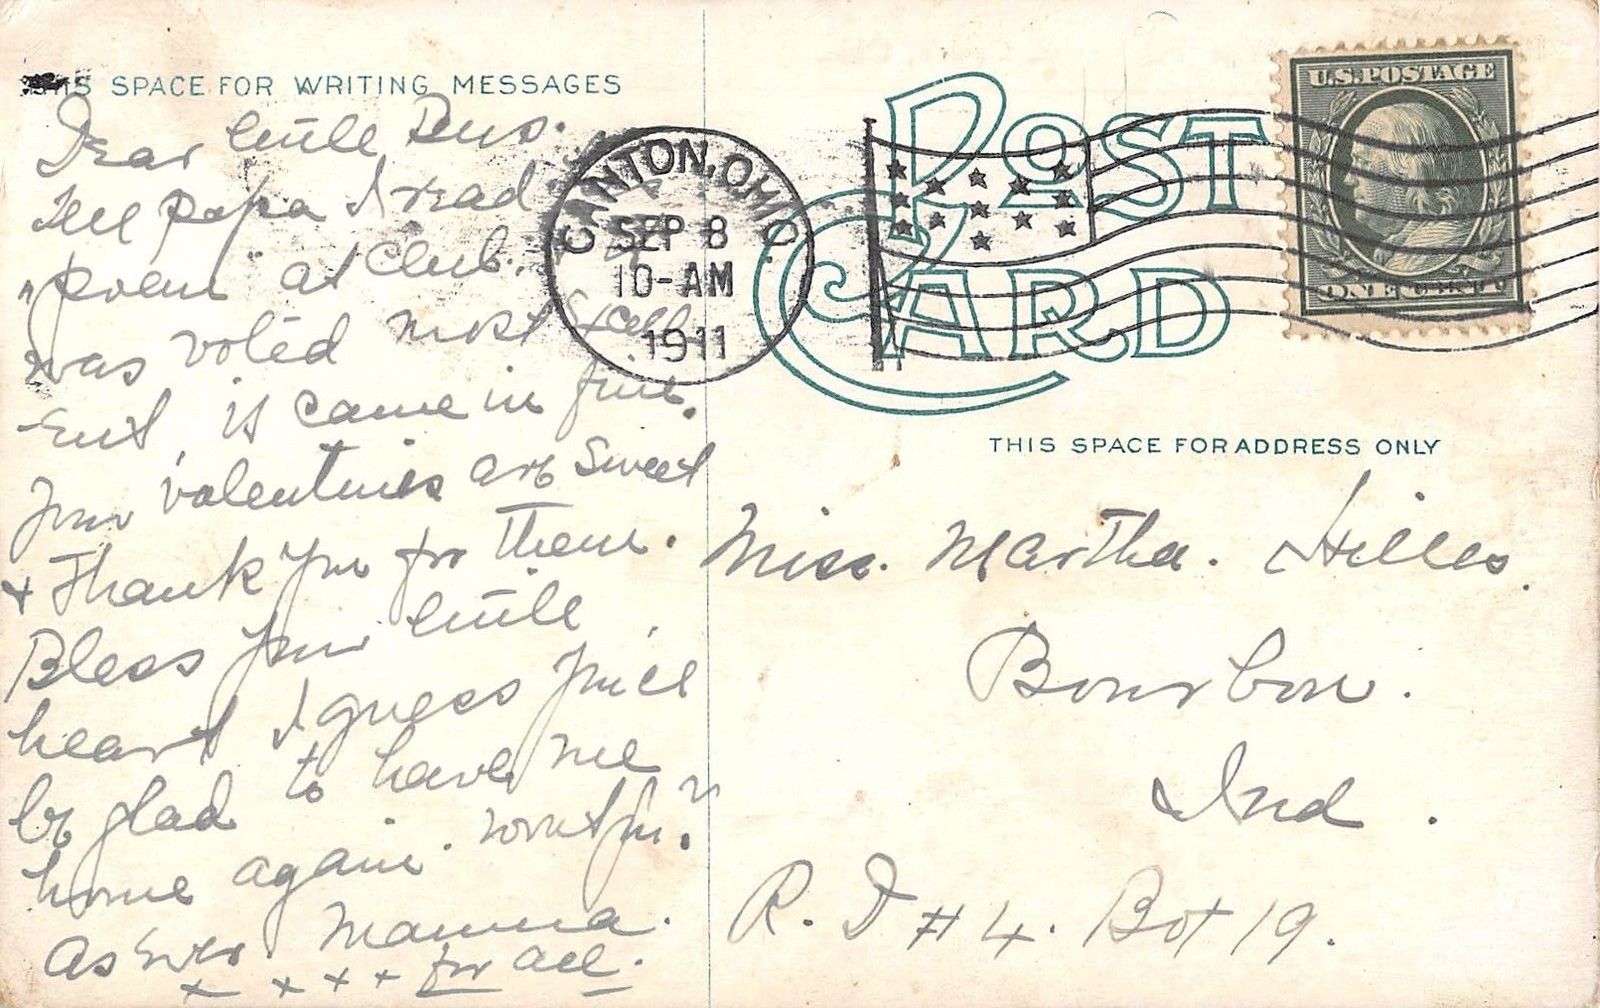 THIS SPACE FOR WRITING MESSAGES
Dear little
Tell papa I read
"poem at club.
was voted most Excell
Ent, it came in fine.
Your valentines are sweet
+ Thank you for them.
Bless your little
heart I guess you'll
be glad to have me
home again. won't you?
As Ever Mamma.
x x x x for all.
CANTON, OHIO.
SEP 8
10-AM
1911
POST
CARD
U.S. POSTAGE
ONE CENT
THIS SPACE FOR ADDRESS ONLY
Miss. Martha. Hilles.
Bourbon.
Ind.
R. D # 4. Box 19.